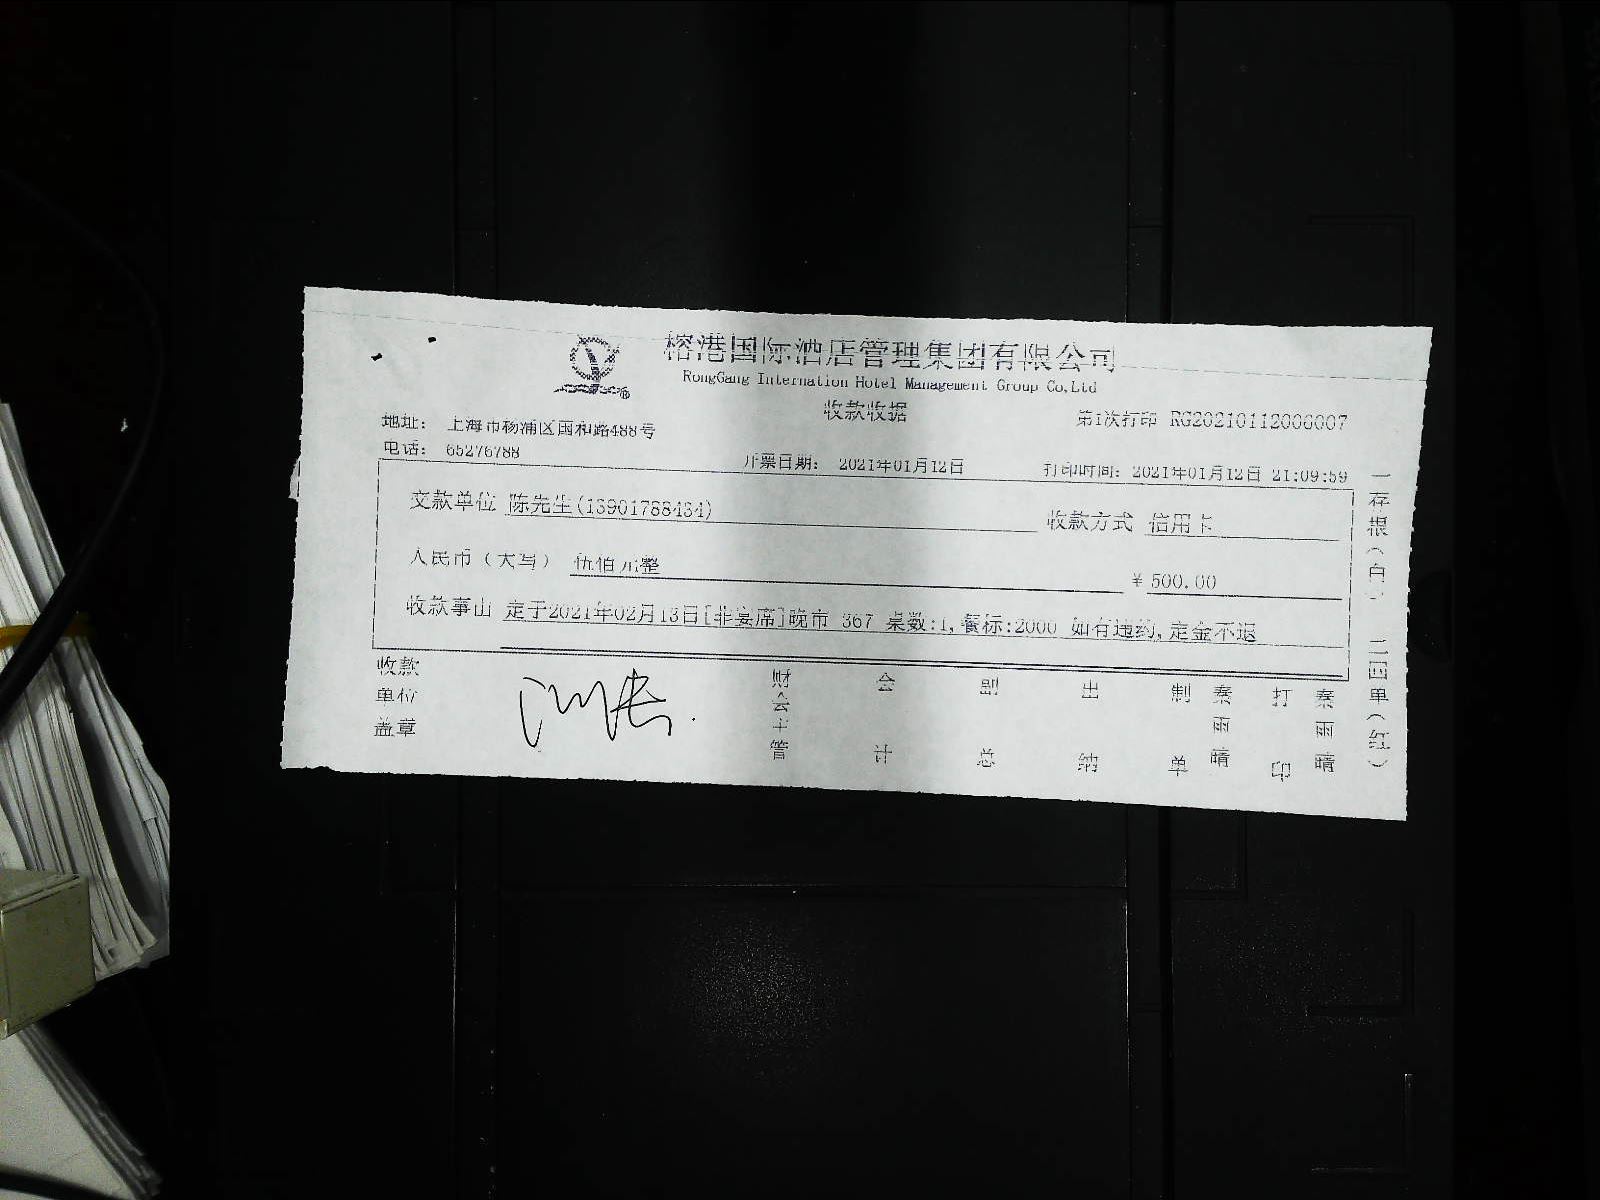 榕港国际酒店管理集团有限公司
RongGang Internation Hotel Management Group Co,Ltd
收款收据
第1次打印 RG20210112000007
地址： 上海市杨浦区国和路488号
电话： 65276788
开票日期： 2021年01月12日
打印时间：2021年01月12日 21:09:59
交款单位 陈先生(13901788434)
收款方式 信用卡
人民币（大写） 伍佰元整
￥500.00
收款事由 定于2021年02月13日[非宴席]晚市 367 桌数:1,餐标:2000 如有违约,定金不退
收款单位盖章
财会主管
会计
副总
出纳
制单 秦雨晴
打印 秦雨晴
一存根（白） 二回单（红）